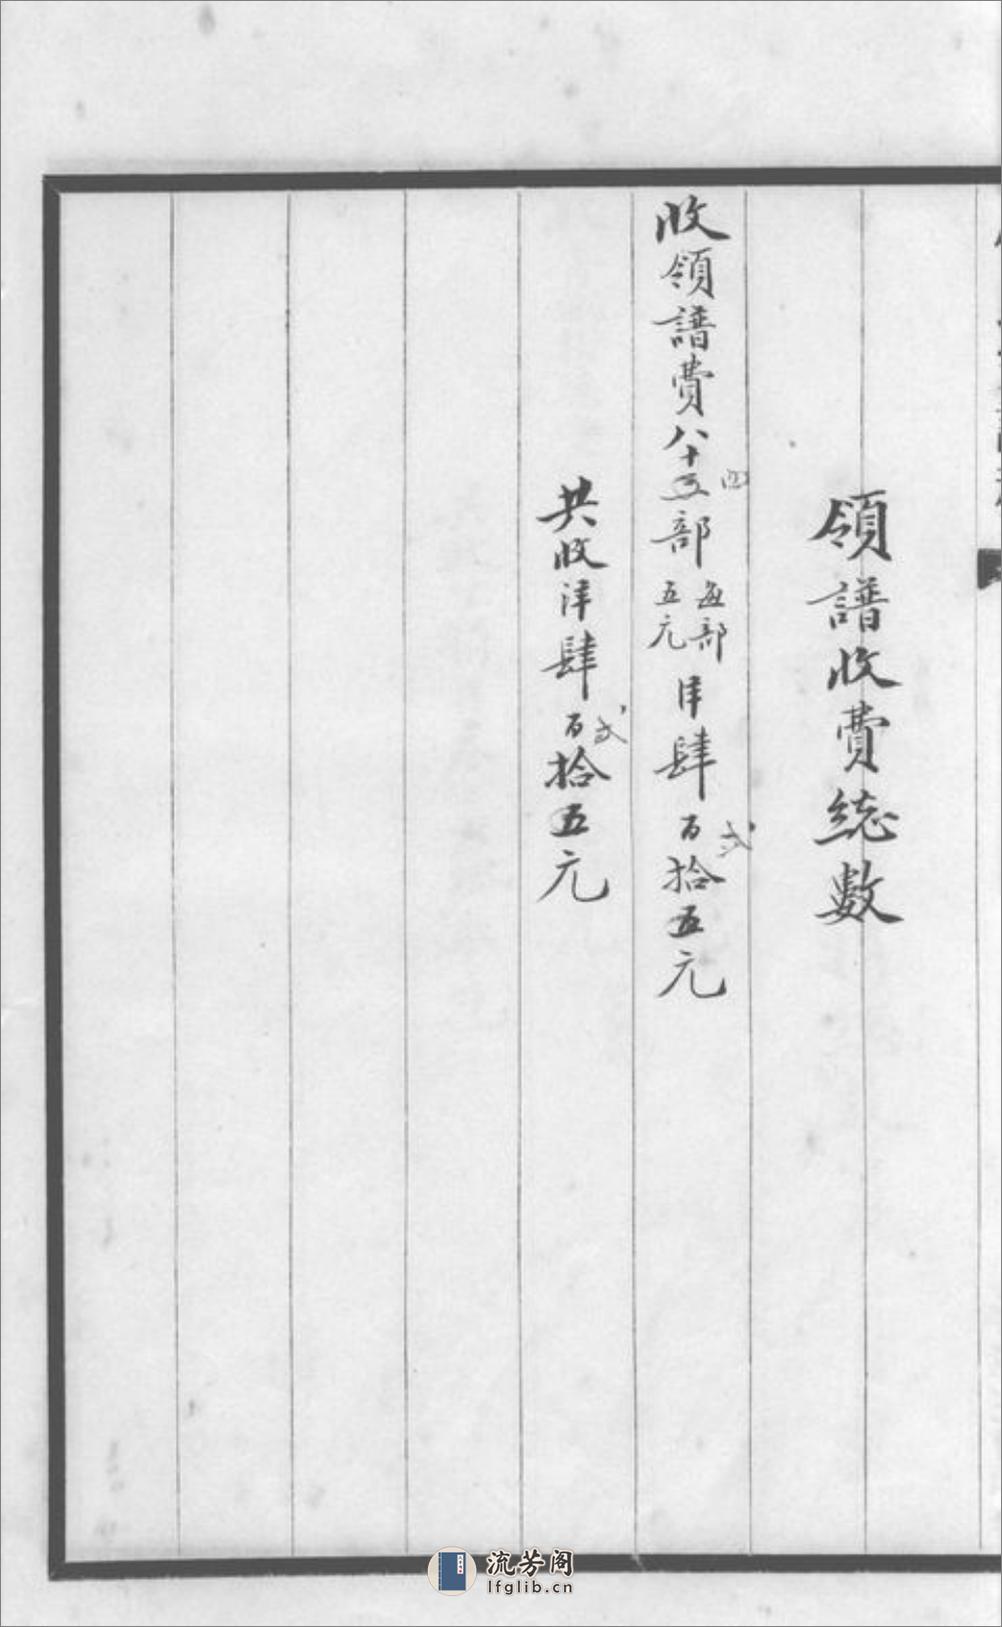 領譜收費總數
收領譜費八十五四部每部五元洋肆百弍拾五元
共收洋肆百弍拾五元
流芳阁
lfglib.cn